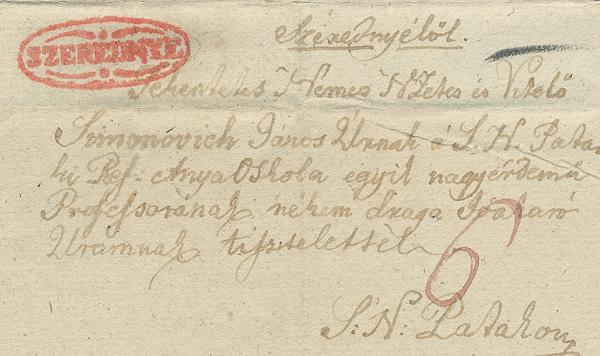 SZEREDNYE
Szérednyéböl.
Tekéntetes Nemes NZetes és Vitéző
Simonovich János Urnak a S. N. Pata-
ki Ref: Anya Oskola egyik nagyérdemü
Professorának nékem draga Jóakaró
Uramnak tisztelettel
6
S: N: Patakon